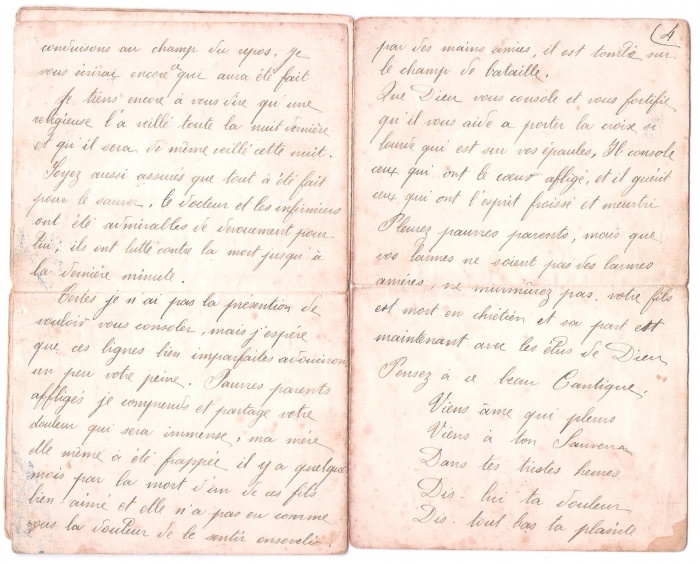 conduisons au champ du repos. Je
vous écrirai encore ce que aura été fait
Je tiens encore à vous dire qu'une
religieuse l'a veillé toute la nuit dernière
et qu'il sera de même veillé cette nuit.
Soyez aussi assurés que tout à été fait
pour le sauver. Le docteur et les infirmiers
ont été admirables de dévouement pour
lui; ils ont lutté contre la mort jusqu'à
la dernière minute.
Certes je n'ai pas la présention de
vouloir vous consoler, mais j'espère
que ces lignes bien imparfaites adouciron
un peu votre peine. Pauvres parents
affligés je comprends et partage votre
douleur qui sera immense, ma mère
elle même à été frappée il y a quelque
mois par la mort d'un de ces fils
bien aimé et elle n'a pas eu comme
vous la douleur de le sentir enseveli
(4
par des mains amies, il est tombé sur
le champ de bataille.
Que Dieu vous console et vous fortifie
qu'il vous aide a porter la croix si
lourde qui est sur vos épaules. Il console
ceux qui ont le cœur afligé, et il guérit
ceux qui ont l'esprit froissé et meurtri
Pleurez pauvres parents, mais que
vos larmes ne soient pas des larmes
amères, ne murmurez pas. votre fils
est mort en chrétien et sa part est
maintenant avec les élus de Dieu
Pensez à ce beau Cantique.
Viens âme qui pleurs
Viens à ton Sauveur
Dans tes tristes heures
Dis-lui ta douleur
Dis-tout bas ta plainte